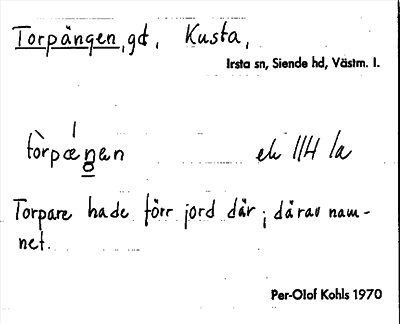 Torpängen, gd, Kusta,
Irsta sn, Siende hd, Västm. l.
tòrpæŋan ek 114 1a
Torpare hade förr jord där; därav nam-
net.
Per-Olof Kohls 1970